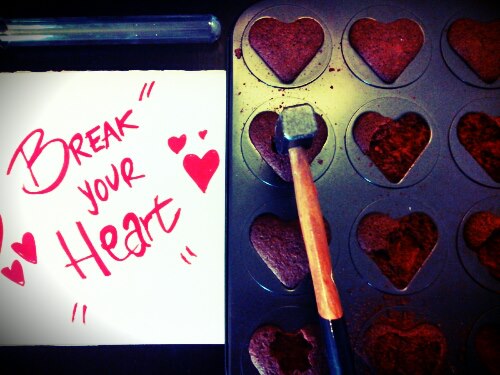 BREAK"
YOUR
Heart
"
"